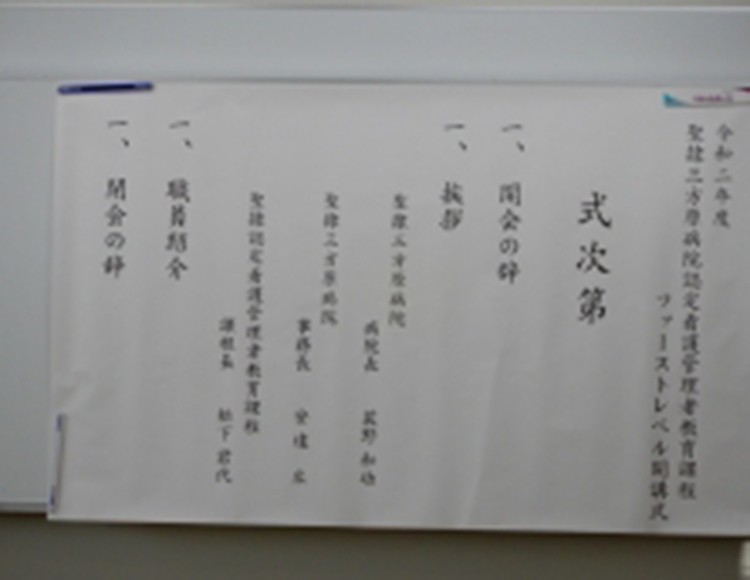 令和二年度
聖隷三方原病院認定看護管理者教育課程
ファーストレベル開講式
式次第
一、開会の辞
一、挨拶
聖隷三方原病院
病院長 荻野和功
聖隷三方原病院
事務長
聖隷認定看護管理者教育課程
課程長 松下君代
一、職員紹介
一、閉会の辞